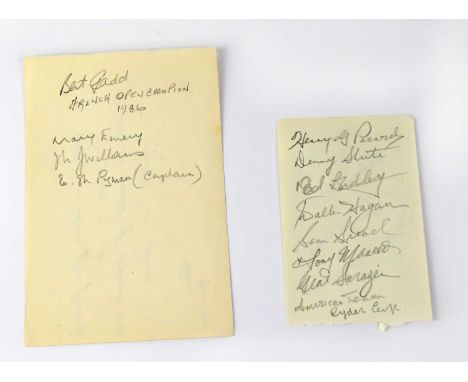 Bert Gadd
FRENCH OPEN CHAMPION
1936
Mary Emery
Williams
E. M Pyman (Captain)
Henry G Picard
Denny Shute
Ed Dudley
Walter Hagen
Sam Snead
Tony Manero
Gene Sarazen
American Team
Ryder Cup.